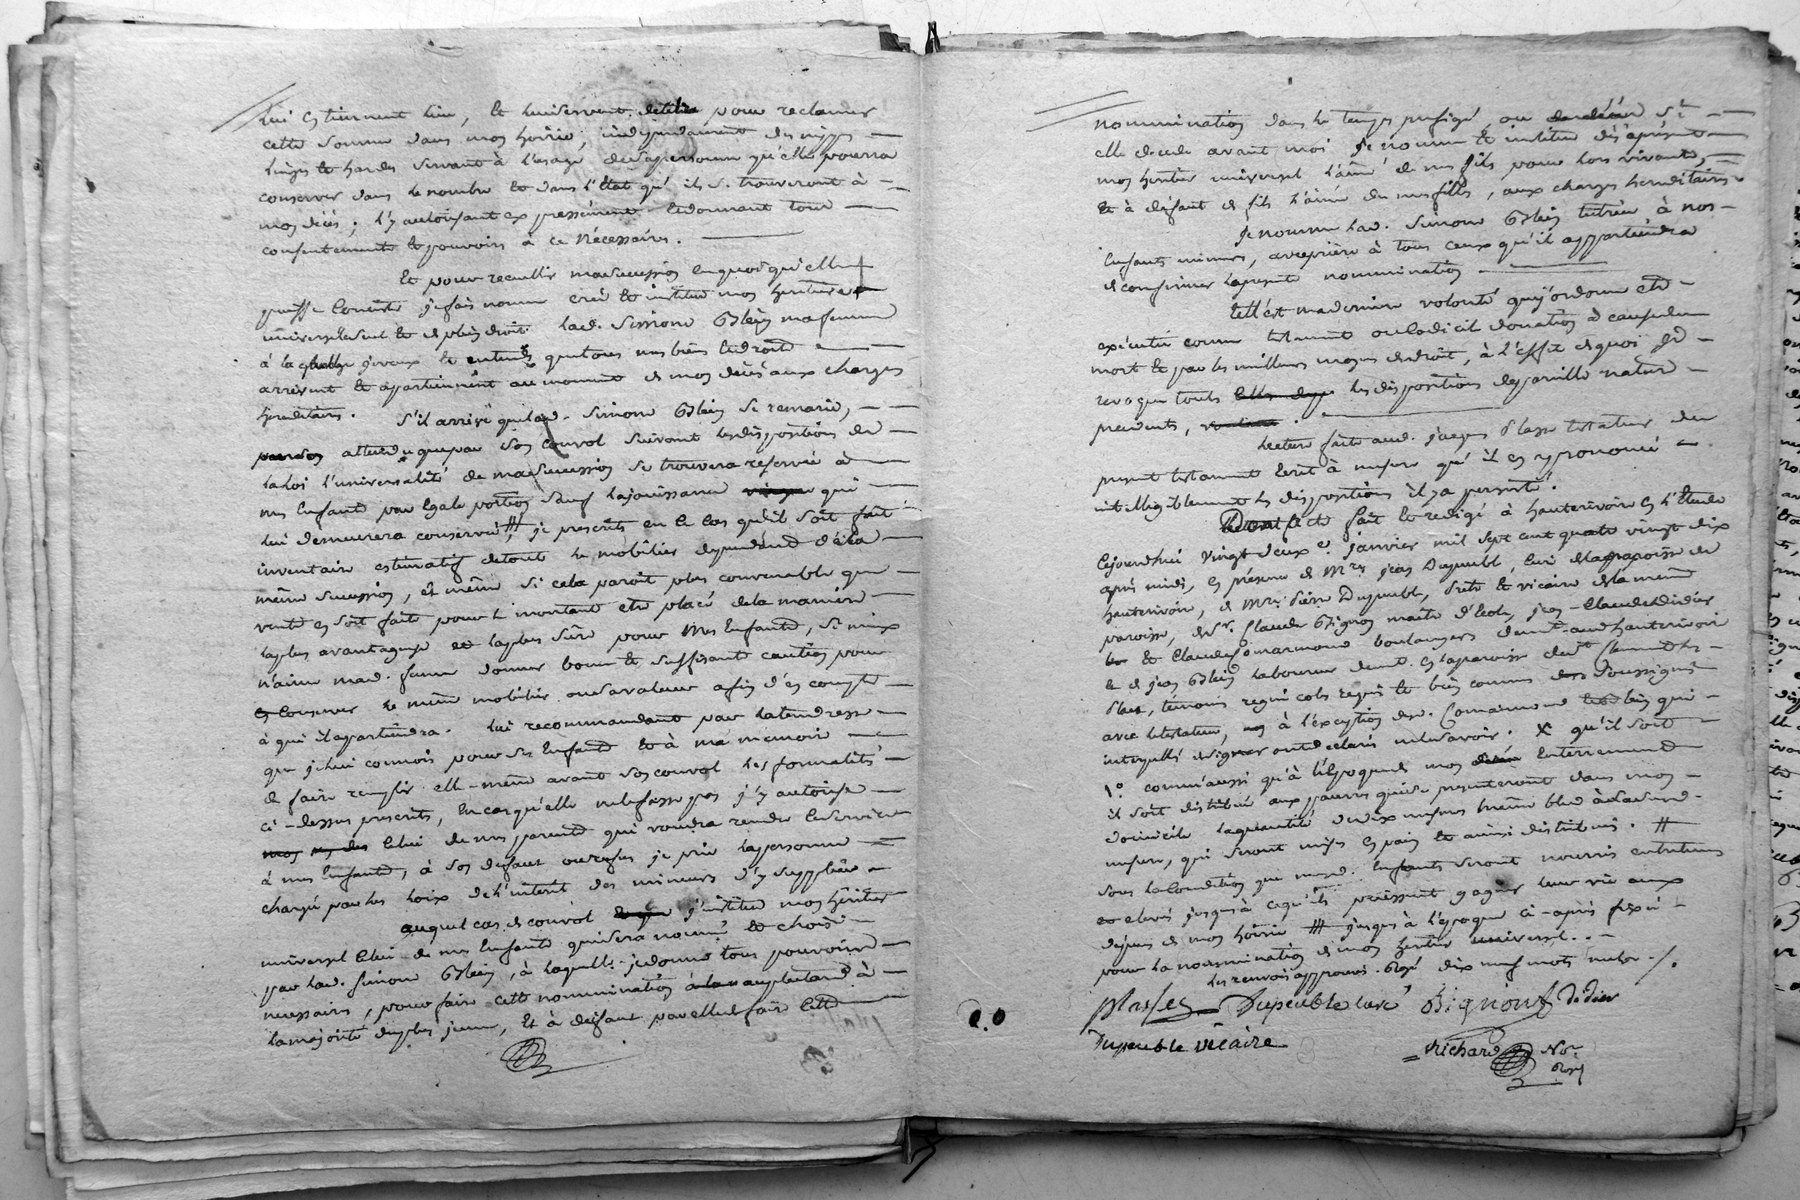 lui en tiennent lieu, et lui servent de titre pour reclamer
cette somme dans mon hoirie, independament des nippes
linges et hardes servant à l'usage de sa personne qu'elle pourra
conserver dans le nombre et dans l'état qu'ils se trouveront à
mon décés; l'y autorisant expressément et donnant tout
consentement et pouvoir à ce nécessaires.
Et pour recueillir ma succession en quoi qu'elle
puisse consister je fais nomme créé et institue mon heritiere
universelle seul et de plein droit lad. Simone Oblein ma femme
à laquelle je veux et entends que tous mes biens et droits
arrivent et apartiennent au moment de mon décés aux charges
hereditaires. S'il arrive que lad. Simone Oblein se remarie,
attendu que par son convol suivant les dispositions de
la loi l'universalité de ma succession se trouvera reservée à
mes enfants par egale portion sauf la jouissance qui
lui demeurera conservée, je prescrits en ce cas qu'il soit fait
inventaire estimatif de tout le mobilier dependant de la
même succession, et même si cela paroit plus convenable que
vente en soit faite pour le montant etre placé de la maniere
la plus avantageuse et la plus sure pour mes enfants, si mieux
n'aime mad. femme donner bonne et suffisante caution pour
conserver le même mobilier ou sa valeur afin d'en compter
à qui il apartiendra. lui recommandant par la tendresse
que je lui connois pour ses enfants et à ma memoire
de faire remplir elle-même avant son convol les formalités
ci-dessus prescrits, en cas qu'elle ne le fasse pas j'y autorise
celui de mes parents qui voudra rendre ce service
à mes enfants, à son defaut ou refus je prie la personne
chargé par les loix de l'interêt des mineurs d'y suppléer
auquel cas de convol j'institue mon héritier
universel celui de mes enfants qui sera nommé et choisi
par lad. Simone Oblein, à laquelle je donne tous pouvoirs
necessaires, pour faire cette nomination à
la majorité du plus jeune, et à defaut par elle de faire cette
nomination dans le temps prefigé, ou St
elle decede avant moi je nomme et institue dès àpresent
mon heritier universel l'ainé de mes fils pour lors vivants,
et à defaut de fils l'ainée de mes filles, aux charges hereditaires
je nomme lad. Simone Oblein tutrice à nos
enfants mineurs, avec priere à tous ceux qu'il appartiendra
de confirmer la presente nomination
telle est ma derniere volonté que j'ordonne etre
executée comme testament ou codicil donation à cause de
mort et par les meilleurs moyens de droit, à l'effet de quoi je
revoque toutes les dispositions de pareille nature
precedents,
lecture faite aud. jacques Plasse testateur du
present testament ecrit à mesure qu'il en a prononcé
intelligiblement les dispositions il y a persisté.
Dont acte fait et redigé à hauterivoire en l'Etude
cejourdhui vingt deux e. janvier mil sept cent quatre vingt dix
après midi, en présence de Mre. jean Dupeuble, curé de la paroisse de
hauterivoire, de Mre. Pierre Dupeuble, Prete et vicaire de la même
paroisse, de Sr. Claude Bignon maitre d'école, jean-Claude Didier
et Claude Comarmond boulangers demt. aud hauterivoire
et de jean Oblein laboureur demt. en la paroisse de
, témoins requis et bien connus Soussignés
avec le testateur, à l'exception de Comarmond Oblein qui
interpellés de signer ont declaré ne le savoir. X qu'il soit
1º. comm'aussi qu'à l'époque de mon enterrement
il soit distribué aux pauvres qui se presenteront dans mon
domicile la quantité de dix mesures blé
mesure, qui seront mises en pain et ainsi distribuées. #
sous la condition que mesd. enfants seront nourris entretenus
et elevés jusques à ce qu'ils puissent gagner leur vie aux
depens de mon hoirie # jusques à l'epoque ci-après fixée
pour la nomination de mon heritier universel.
Les renvois approuvés. Rayé dix neuf mots nuls.
Plasse Dupeuble curé Bignon Didier
Dupeuble vicaire
Richard Nore.
Royal